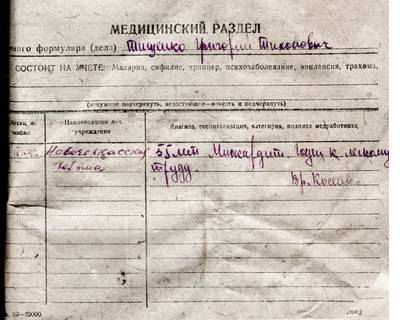 МЕДИЦИНСКИЙ РАЗДЕЛ
ного формуляра (дела) Тищенко Григорий Тихонович
СОСТОИТ НА УЧЕТЕ: Малярия, сифилис, триппер, психозаболевание, эпилепсия, трахома,
(ненужное подчеркнуть, недостающее—вписать и подчеркнуть)
месяц и число
Наименование леч. учреждения
Диагноз, госпитализация, категория, подпись медработника
Новочеркасская 55 лет Миокардит. Годен к легкому
труду.
Вр.